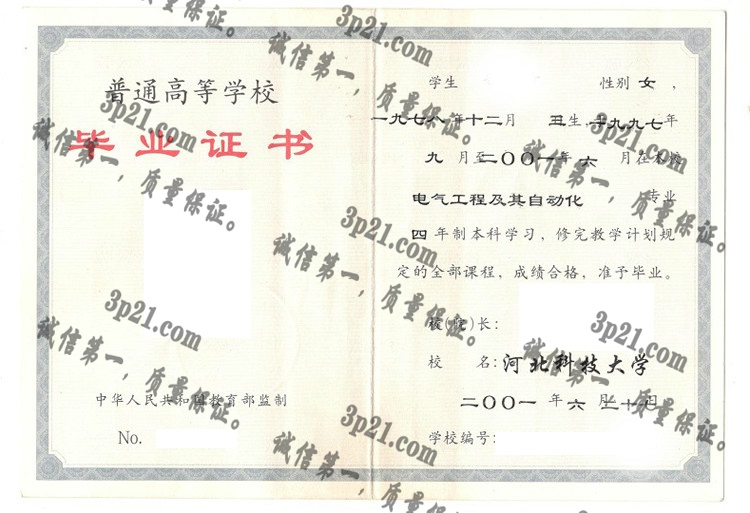 普通高等学校
毕业证书
中华人民共和国教育部监制
No.
学生 性别 女，
一九七八年十二月 生，一九九七年
九 月至二〇〇一年 六 月在本校
电气工程及其自动化 专业
四 年制本科学习，修完教学计划规
定的全部课程，成绩合格，准予毕业。
校(院)长：
校 名：河北科技大学
二〇〇一 年 六 月 日
学校编号：
3p21.com
诚信第一，质量保证。
3p21.com
诚信第一，质量保证。
3p21.com
诚信第一，质量保证。
3p21.com
诚信第一，质量保证。
3p21.com
诚信第一，质量保证。
3p21.com
诚信第一，质量保证。
3p21.com
诚信第一，质量保证。